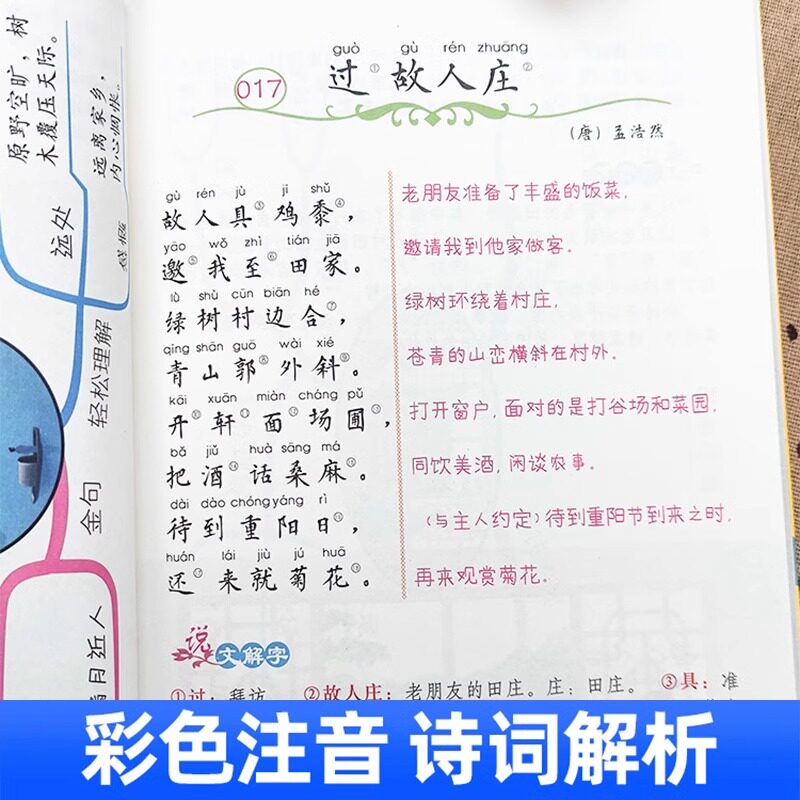 原野空旷，树
木覆压天际。
远离家乡，
内心惆怅。
远处
轻松理解
金句
月近人
guò gù rén zhuāng
017 过① 故人庄②
（唐）孟浩然
gù rén jù jī shǔ
故人具③鸡黍④，
老朋友准备了丰盛的饭菜，
yāo wǒ zhì tián jiā
邀⑤我至田家。
邀请我到他家做客。
lǜ shù cūn biān hé
绿树村边合⑦，
绿树环绕着村庄，
qīng shān guō wài xié
青山郭⑧外斜⑨。
苍青的山峦横斜在村外。
kāi xuān miàn cháng pǔ
开⑩轩⑪面⑫场圃⑬，
打开窗户，面对的是打谷场和菜园，
bǎ jiǔ huà sāng má
把酒⑭话桑麻⑮。
同饮美酒，闲谈农事。
dài dào chóng yáng rì
待到重阳日⑯，
（与主人约定）待到重阳节到来之时，
huán lái jiù jú huā
还⑰来就菊花⑱。
再来观赏菊花。
说文解字
①过：拜访 ②故人庄：老朋友的田庄。庄：田庄。 ③具：准
彩色注音 诗词解析